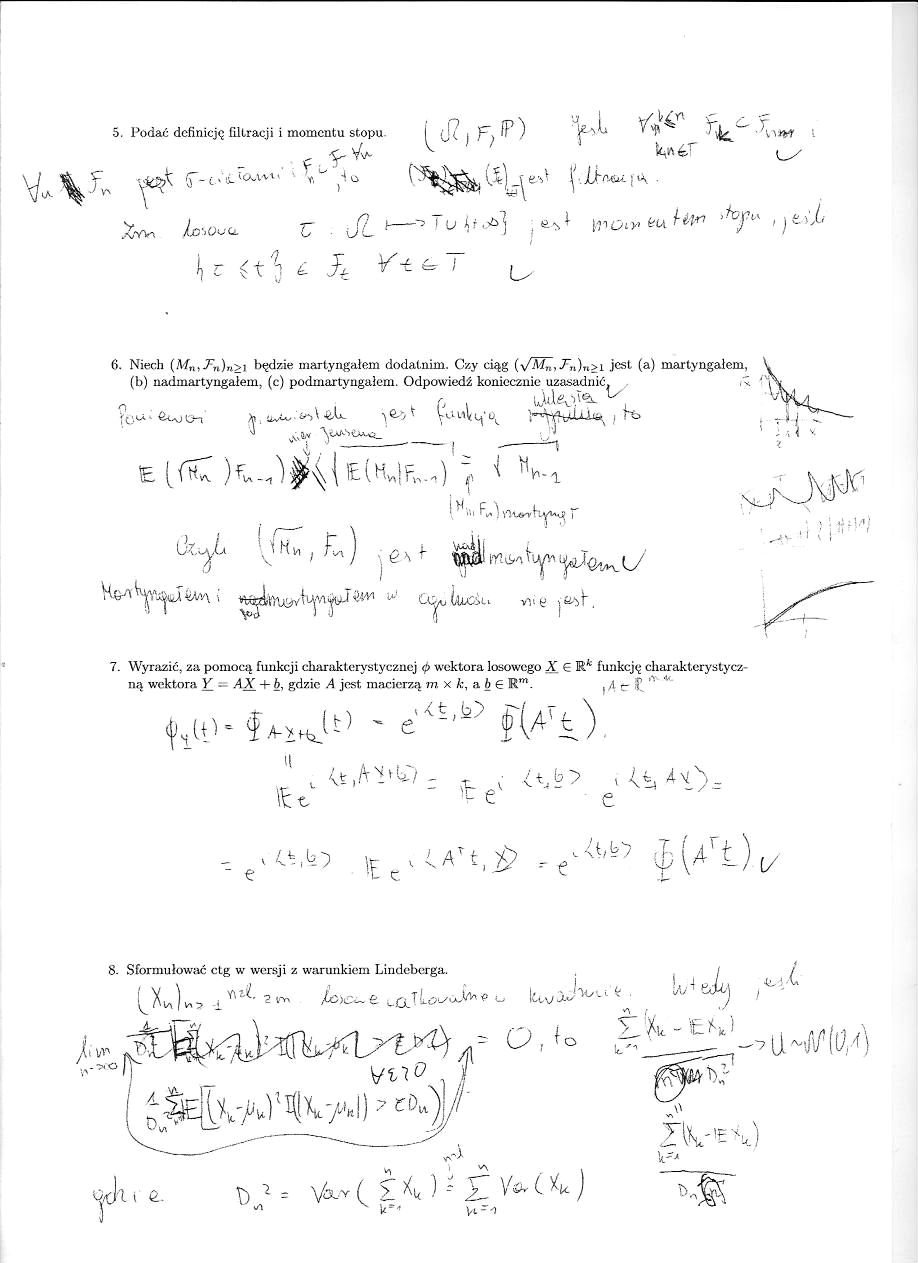 5. Podać definicję filtracji i momentu stopu. (Ω, F, ℙ) Jeśli ∀ k≤n k,n∈T F_k ⊂ F_n i
∀n F_n jest σ-ciałami i F_n ⊂ F ∀n, to (F) jest filtracją.
Zm losowa τ : Ω ↦ T ∪ {+∞} jest momentem stopu, jeśli
{τ ≤ t} ∈ F_t ∀t∈T
6. Niech (Mₙ, Fₙ)ₙ≥₁ będzie martyngałem dodatnim. Czy ciąg (√Mₙ, Fₙ)ₙ≥₁ jest (a) martyngałem,
(b) nadmartyngałem, (c) podmartyngałem. Odpowiedź koniecznie uzasadnić.
Ponieważ pierwiastek jest funkcją wklęsłą, to
nier Jensena
𝔼(√Mₙ | Fₙ₋₁) ≤ √𝔼(Mₙ|Fₙ₋₁) = √Mₙ₋₁
(Mₙ, Fₙ) martyngał
Czyli (√Mₙ, Fₙ) jest nadmartyngałem
Martyngałem i podmartyngałem w ogólności nie jest.
7. Wyrazić, za pomocą funkcji charakterystycznej ϕ wektora losowego X ∈ ℝᵏ funkcję charakterystycz-
ną wektora Y = AX + b, gdzie A jest macierzą m × k, a b ∈ ℝᵐ.
ϕ_Y(t) = Φ_{AX+b}(t) = e^{i<t,b>} Φ(Aᵀt).
||
𝔼e^{i<t,AX+b>} = 𝔼e^{i<t,b>} · e^{i<t,AX>} =
= e^{i<t,b>} · 𝔼e^{i<Aᵀt,X>} = e^{i<t,b>} Φ(Aᵀt)
8. Sformułować ctg w wersji z warunkiem Lindeberga.
(Xₙ)ₙ≥₁ nzl zm. losowe całkowalne w kwadracie. Wtedy jeśli
lim n→∞ = 0, to Σ_{k=1}^{n} (X_k − 𝔼X_k) / D_n → U ~ N(0,1)
∀ε>0
1/D_n² Σ 𝔼[(X_k−μ_k)² 𝕀(|X_k−μ_k|) > εD_n)]
||
Σ_{k=1}^{n} (X_k − 𝔼X_k) / D_n
nzl
gdzie D_n² = Var(Σ_{k=1}^{n} X_k) = Σ_{k=1}^{n} Var(X_k)